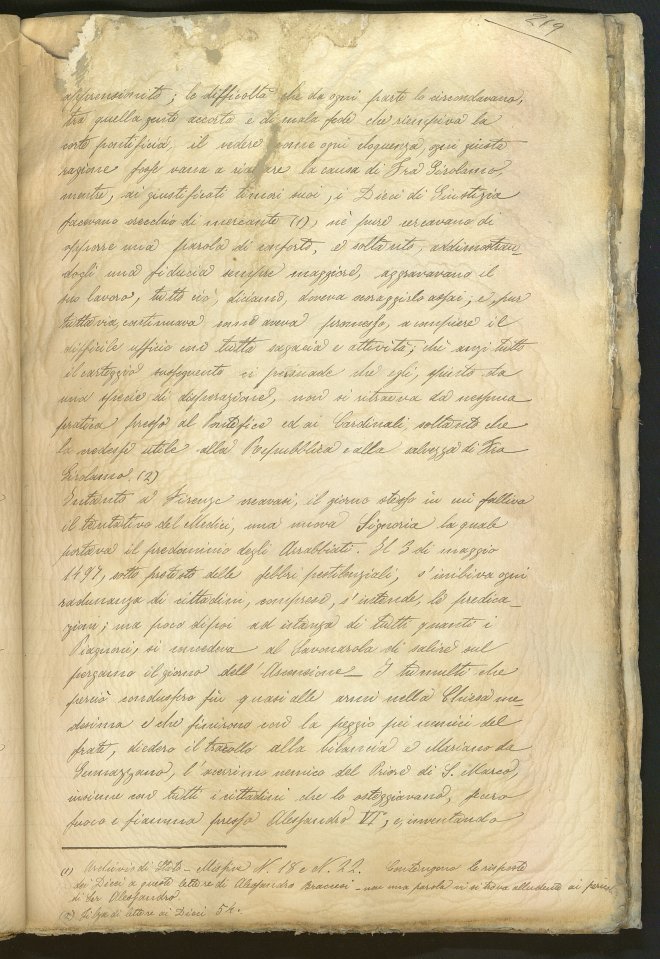 219
apprensionito; le difficoltà che da ogni parte lo circondavano,
tra quella gente accorta e di mala fede che riempiva la
corte pontificia, il vedere come ogni eloquenza, ogni giusta
ragione fosse vana a rialzare la causa di Fra Girolamo,
mentre, ai giustificati timori suoi, i Dieci di Giustizia
facevano orecchio di mercante (1), nè pure cercavano di
opporre una parola di conforto, e soltanto, addimostran-
dogli una fiducia sempre maggiore, aggravavano il
suo lavoro, tutto ciò, diciamo, doveva scoraggirlo assai; e pur
tuttavia, continuava come aveva promesso, a compiere il
difficile ufficio con tutta sagacia e attività; chè anzi tutto
il carteggio susseguente ci persuade che egli, spinto da
una specie di disperazione, non si ritraeva da nessuna
pratica presso al Pontefice ed ai Cardinali, soltanto che
la vedesse utile alla Repubblica e alla salvezza di Fra
Girolamo. (2)
Intanto a Firenze creavasi, il giorno stesso in cui falliva
il tentativo del Medici, una nuova Signoria la quale
portava il predominio degli Arrabbiati. Il 3 di maggio
1497, sotto pretesto delle febbri pestilenziali, s'inibiva ogni
radunanza di cittadini, comprese, s'intende, le predica-
zioni; ma poco dipoi ad istanza di tutti quanti i
Piagnoni, si concedeva al Savonarola di salire sul
pergamo il giorno dell'Ascensione_ I tumulti che
perciò condussero fin quasi alle armi nella Chiesa me-
desima e che finirono con la peggio pei nemici del
frate, diedero il tracollo alla bilancia e Mariano da
Genazzano, l'acerrimo nemico del Priore di S. Marco,
insieme con tutti i cittadini che lo osteggiavano, fecero
fuoco e fiamma presso Alessandro VI; e, inventando
(1) Archivio di Stato - Missive N. 18 e N. 22. Contengono le risposte
dei Dieci a queste lettere di Alessandro Braccesi - non una parola vi si trova alludente ai
di Ser Alessandro.
(2) Filza di lettere ai Dieci 54.